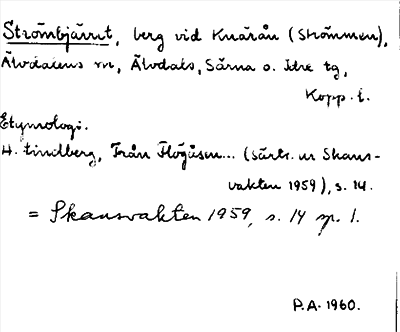 Strömbjärret, berg vid Knärån (Strömmen),
Älvdalens sn, Älvdals, Särna o. Idre tg,
Kopp. l.
Etymologi.
H. Lindberg, Från Flögåsen... (Särtr. ur Skans-
vakten 1959), s. 14.
= Skansvakten 1959, s. 14 sp. 1.
P.A. 1960.